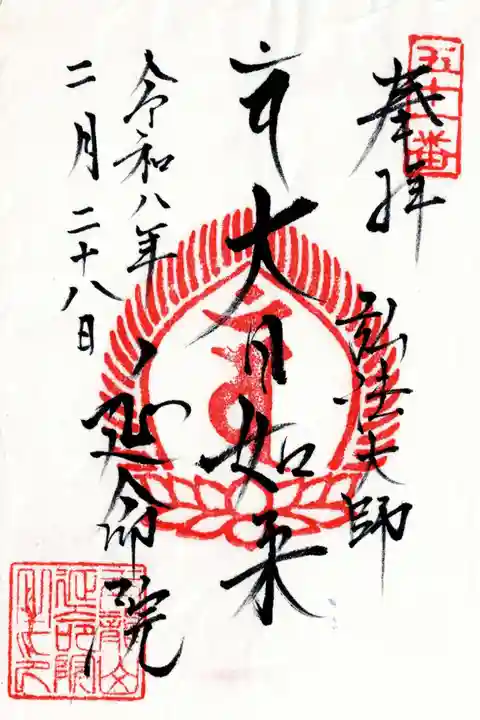 奉拝
弘法大師
大日如来
令和八年
二月二十八日
延命院